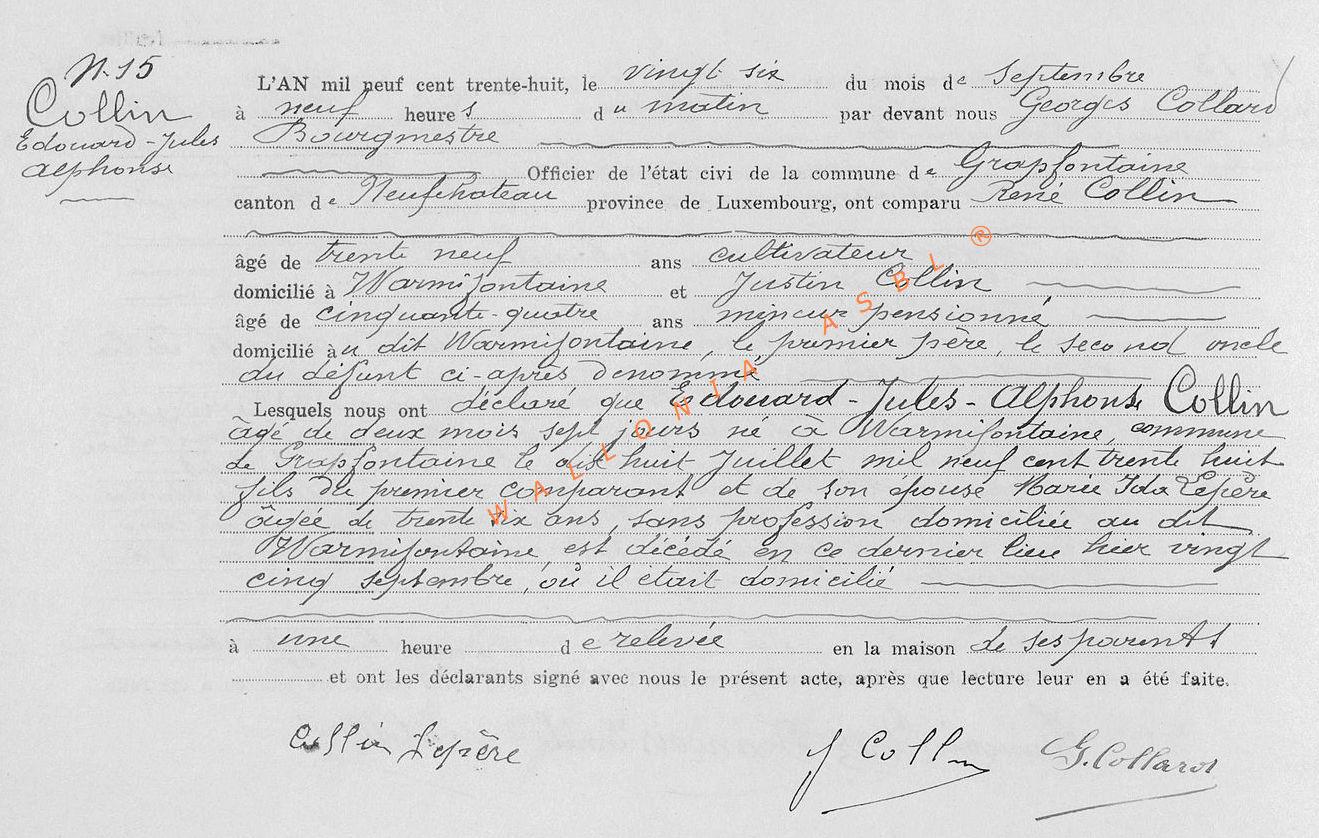 N. 15
Collin
Edouard-Jules
Alphonse
L'AN mil neuf cent trente-huit, le vingt six du mois de Septembre
à neuf heures du matin par devant nous Georges Collard
Bourgmestre
Officier de l'état civi de la commune de Grapfontaine
canton de Neufchateau province de Luxembourg, ont comparu René Collin
âgé de trente neuf ans cultivateur
domicilié à Warmifontaine et Justin Collin
âgé de cinquante-quatre ans mineur pensionné
domicilié àu dit Warmifontaine, le premier père, le second oncle
du défunt ci-après dénommé
Lesquels nous ont déclaré que Edouard-Jules-Alphonse Collin
âgé de deux mois sept jours né à Warmifontaine, commune
de Grapfontaine le dix huit Juillet mil neuf cent trente huit
fils du premier comparant et de son épouse Marie Ida Lepère
âgée de trente six ans, sans profession domiciliée au dit
Warmifontaine est décédé en ce dernier lieu hier vingt
cinq septembre, où il était domicilié
à une heure de relevée en la maison de ses parents
et ont les déclarants signé avec nous le présent acte, après que lecture leur en a été faite.
Collin Lepère J Collin G. Collard
WALLONIA ASBL ®